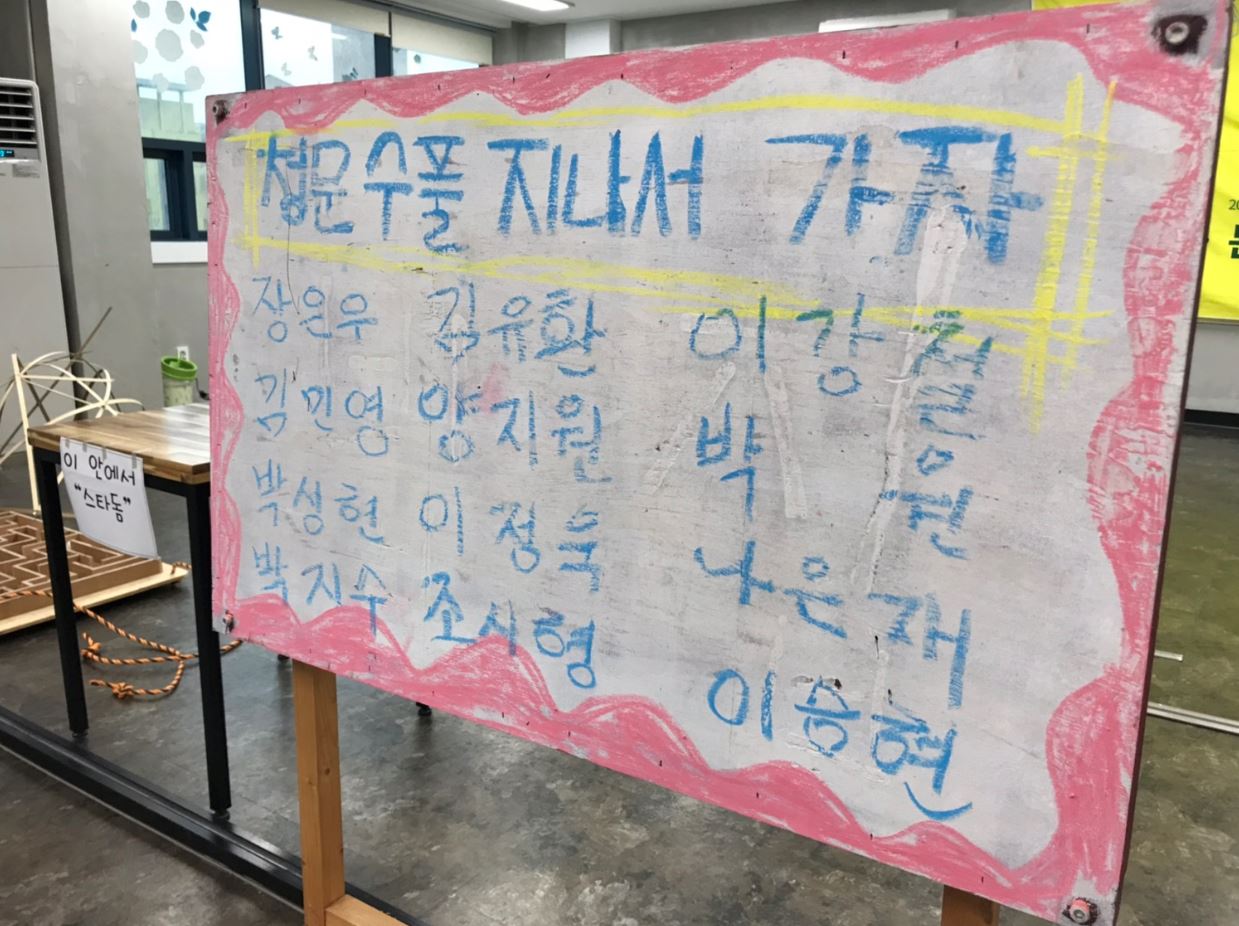 성문수풀 지나서 가자
장은우 김유환 이강절
김민영 양지원 박 은권
박성현 이정특 나은재
박지수 조사형 이승현
이 안에서
"스타돔"
20